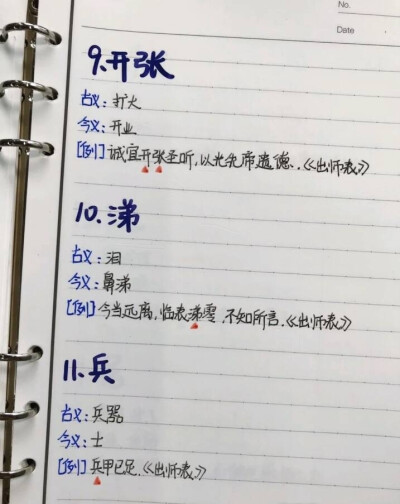 No.
Date
9.开张
古义:扩大
今义:开业
[例]诚宜开张圣听,以光先帝遗德.《出师表》
10.涕
古义:泪
今义:鼻涕
[例]今当远离,临表涕零.不知所言.《出师表》
11.兵
古义:兵器
今义:士
[例]兵甲已足.《出师表》